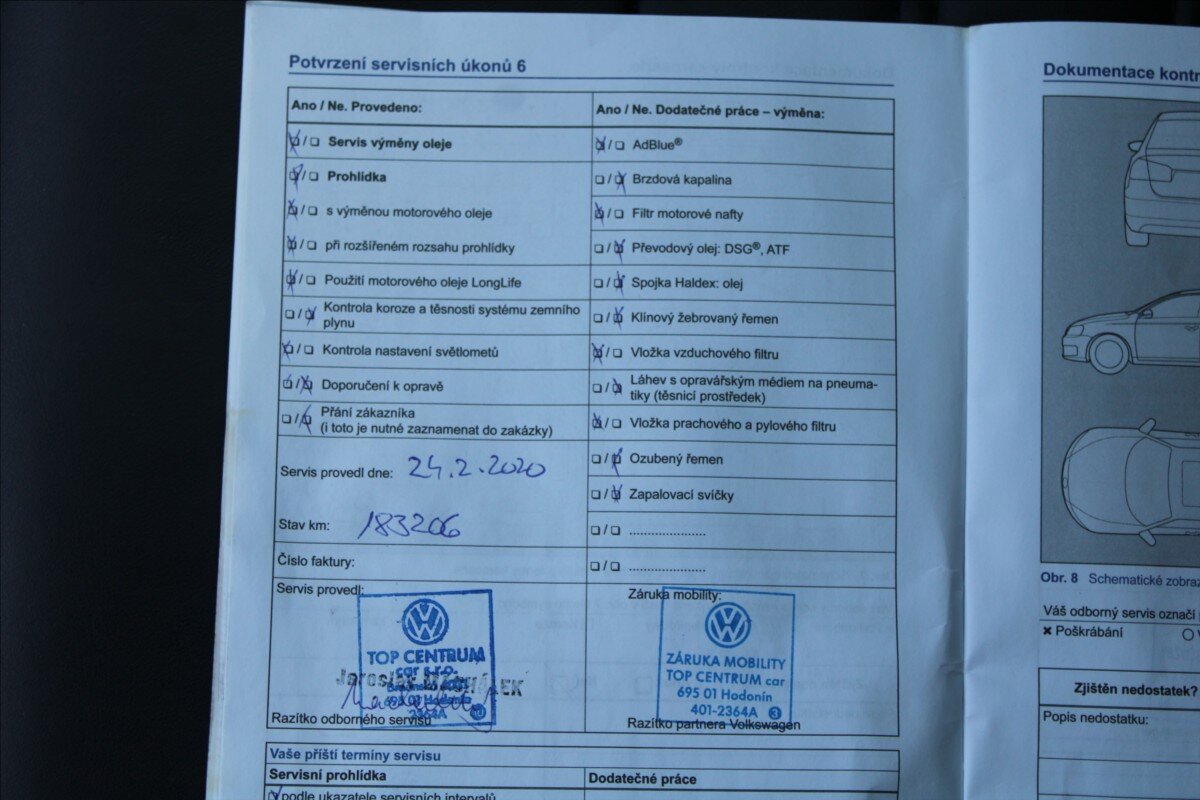 Potvrzení servisních úkonů 6
Ano / Ne. Provedeno:
Servis výměny oleje
Prohlídka
s výměnou motorového oleje
při rozšířeném rozsahu prohlídky
Použití motorového oleje LongLife
Kontrola koroze a těsnosti systému zemního
plynu
Kontrola nastavení světlometů
Doporučení k opravě
Přání zákazníka
(i toto je nutné zaznamenat do zakázky)
Servis provedl dne: 24.2.2020
Stav km: 183206
Číslo faktury:
Servis provedl:
TOP CENTRUM
car s.r.o.
Jaroslav
695 01 Hodonín
2364A
Razítko odborného servisu
Ano / Ne. Dodatečné práce – výměna:
AdBlue®
Brzdová kapalina
Filtr motorové nafty
Převodový olej: DSG®, ATF
Spojka Haldex: olej
Klínový žebrovaný řemen
Vložka vzduchového filtru
Láhev s opravářským médiem na pneuma-
tiky (těsnicí prostředek)
Vložka prachového a pylového filtru
Ozubený řemen
Zapalovací svíčky
.....................
.....................
Záruka mobility:
ZÁRUKA MOBILITY
TOP CENTRUM car
695 01 Hodonín
401-2364A 3
Razítko partnera Volkswagen
Vaše příští termíny servisu
Servisní prohlídka
Dodatečné práce
podle ukazatele servisních intervalů
Dokumentace kontr
Obr. 8 Schematické zobraz
Váš odborný servis označí
Poškrábání
Zjištěn nedostatek?
Popis nedostatku: